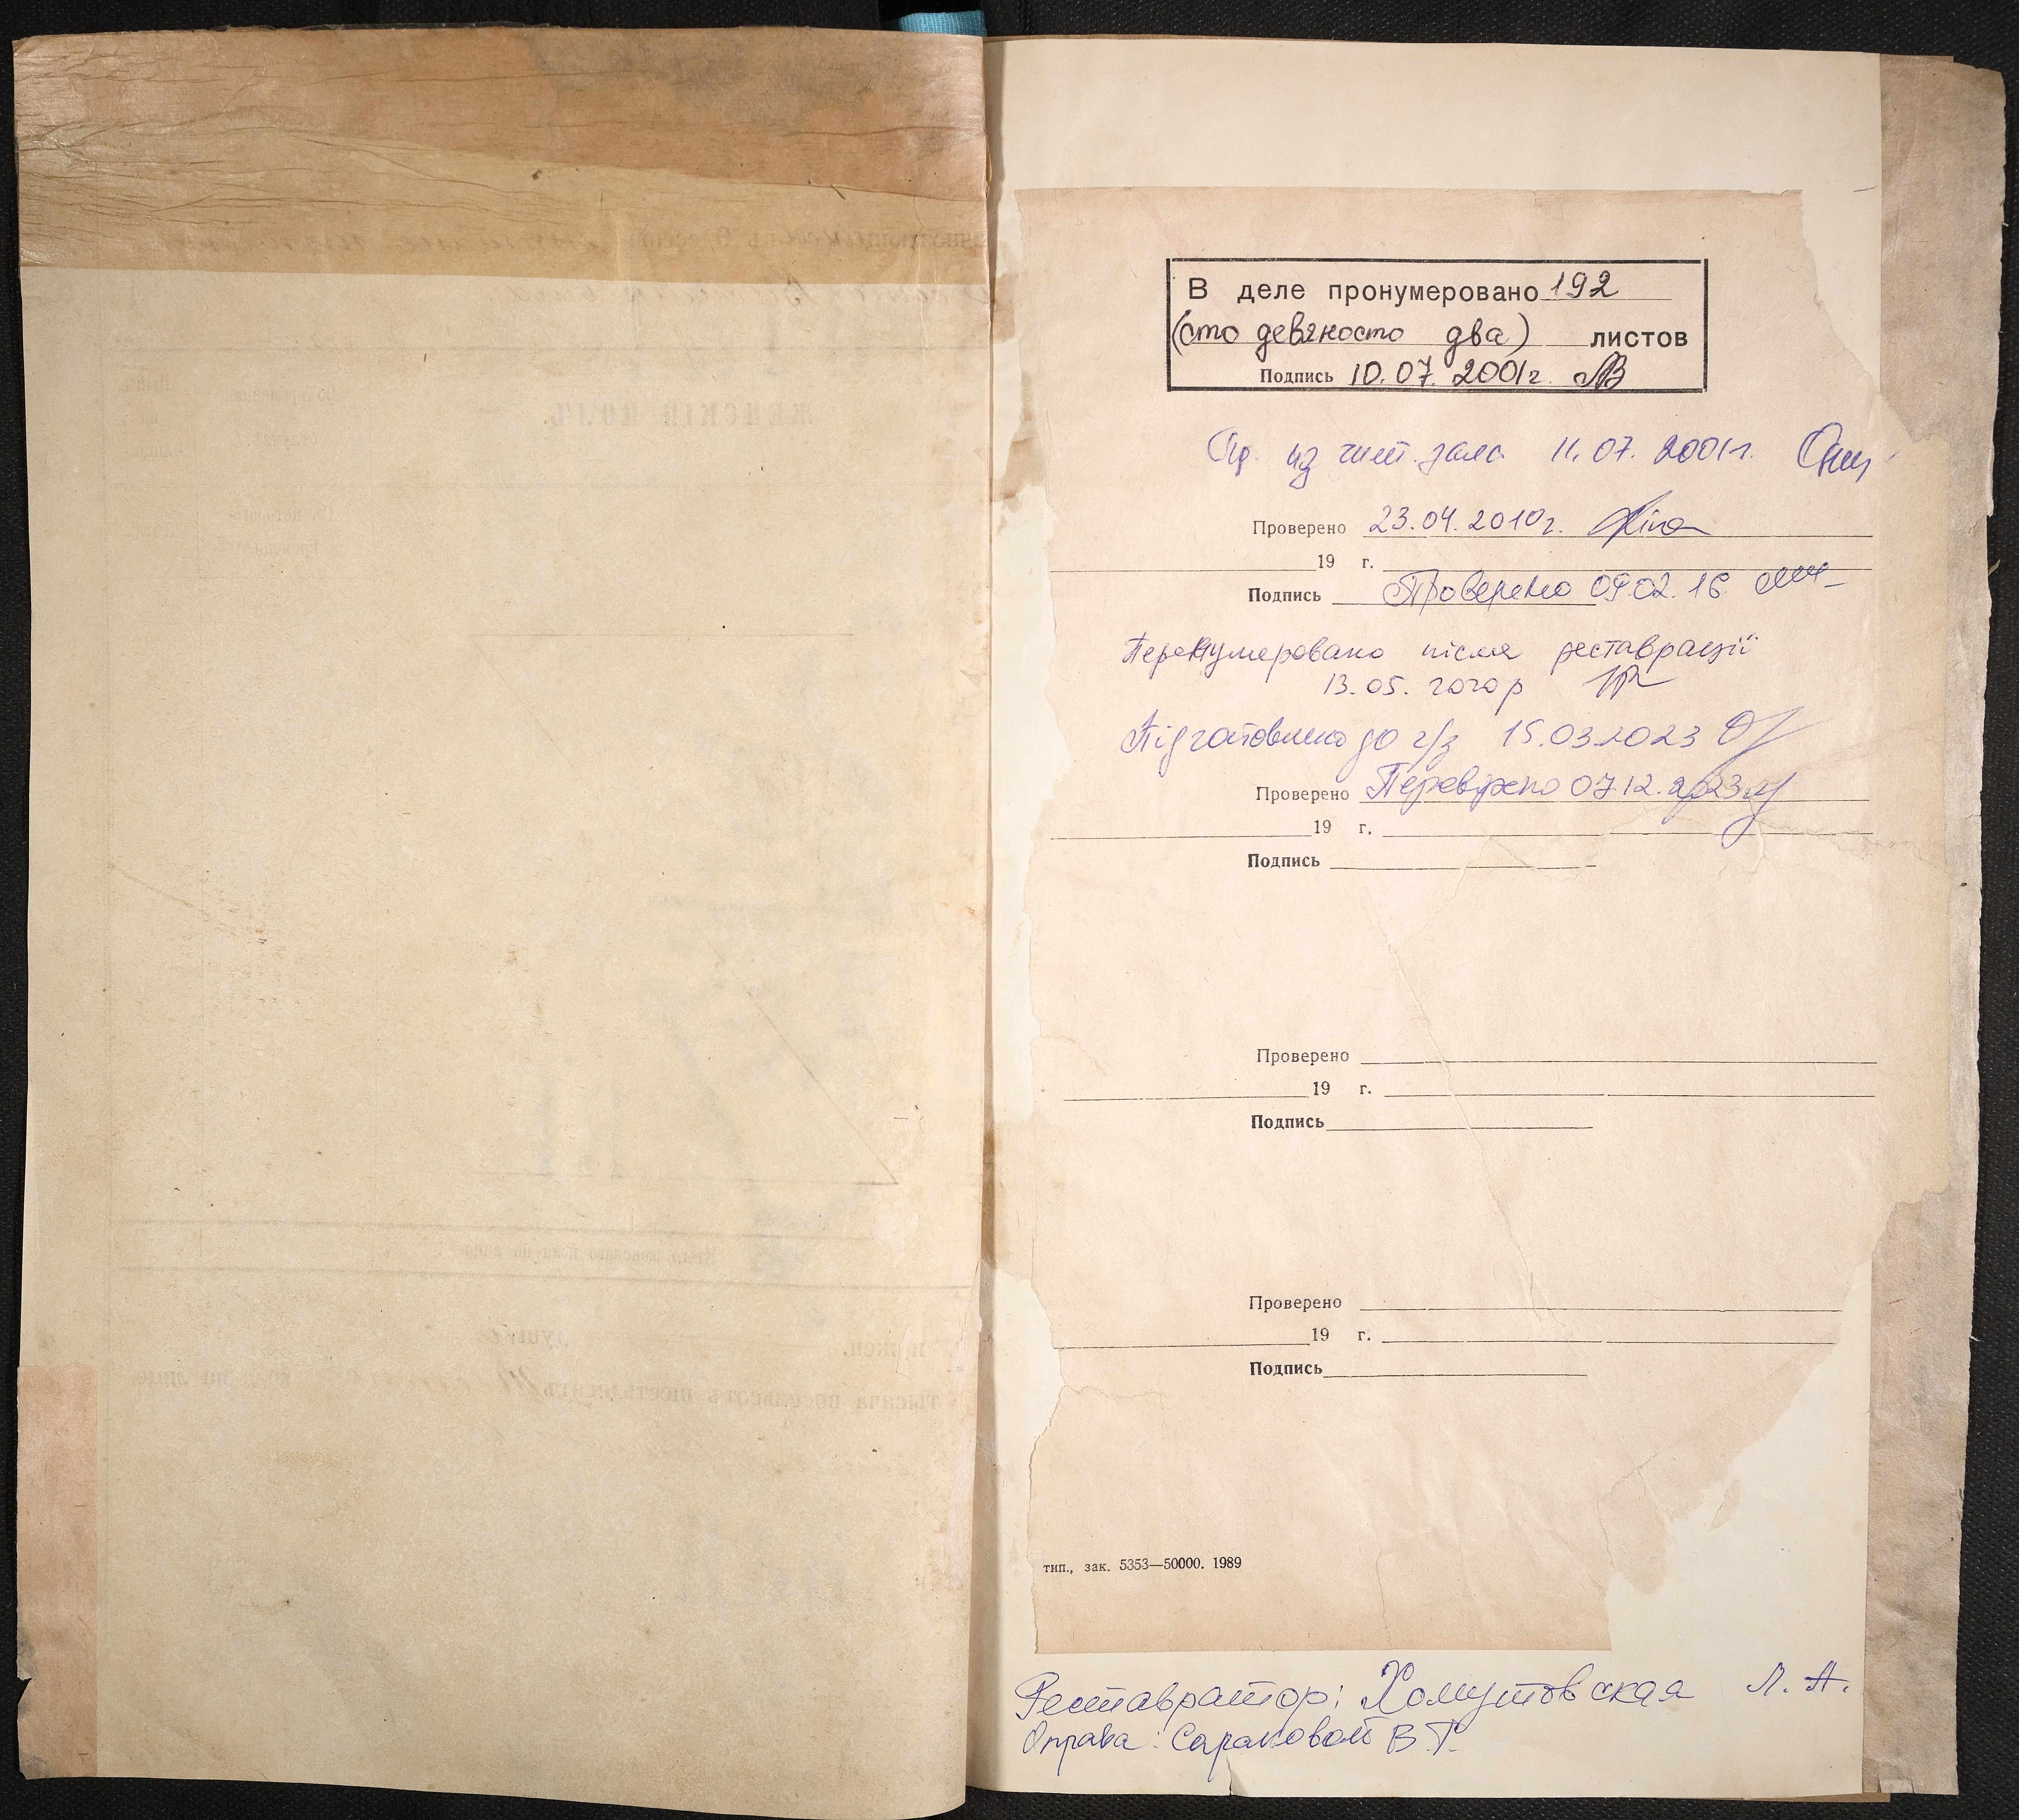 В деле пронумеровано 192
(сто девяносто два) листов
Подпись 10.07.2001г.
Пр. из чит. зала 11.07.2001г.
Проверено 23.04.2010г.
19 г.
Подпись Проверено 09.02.16
Перенумеровано після реставрації
13.05.2020р
Підготовлено до ч/з 15.03.2023
Проверено Перевірено 07.12.2023
19 г.
Подпись
Проверено
19 г.
Подпись
Проверено
19 г.
Подпись
тип., зак. 5353—50000. 1989
Реставратор: Хомутовская Л. А.
Оправа: В. Г.